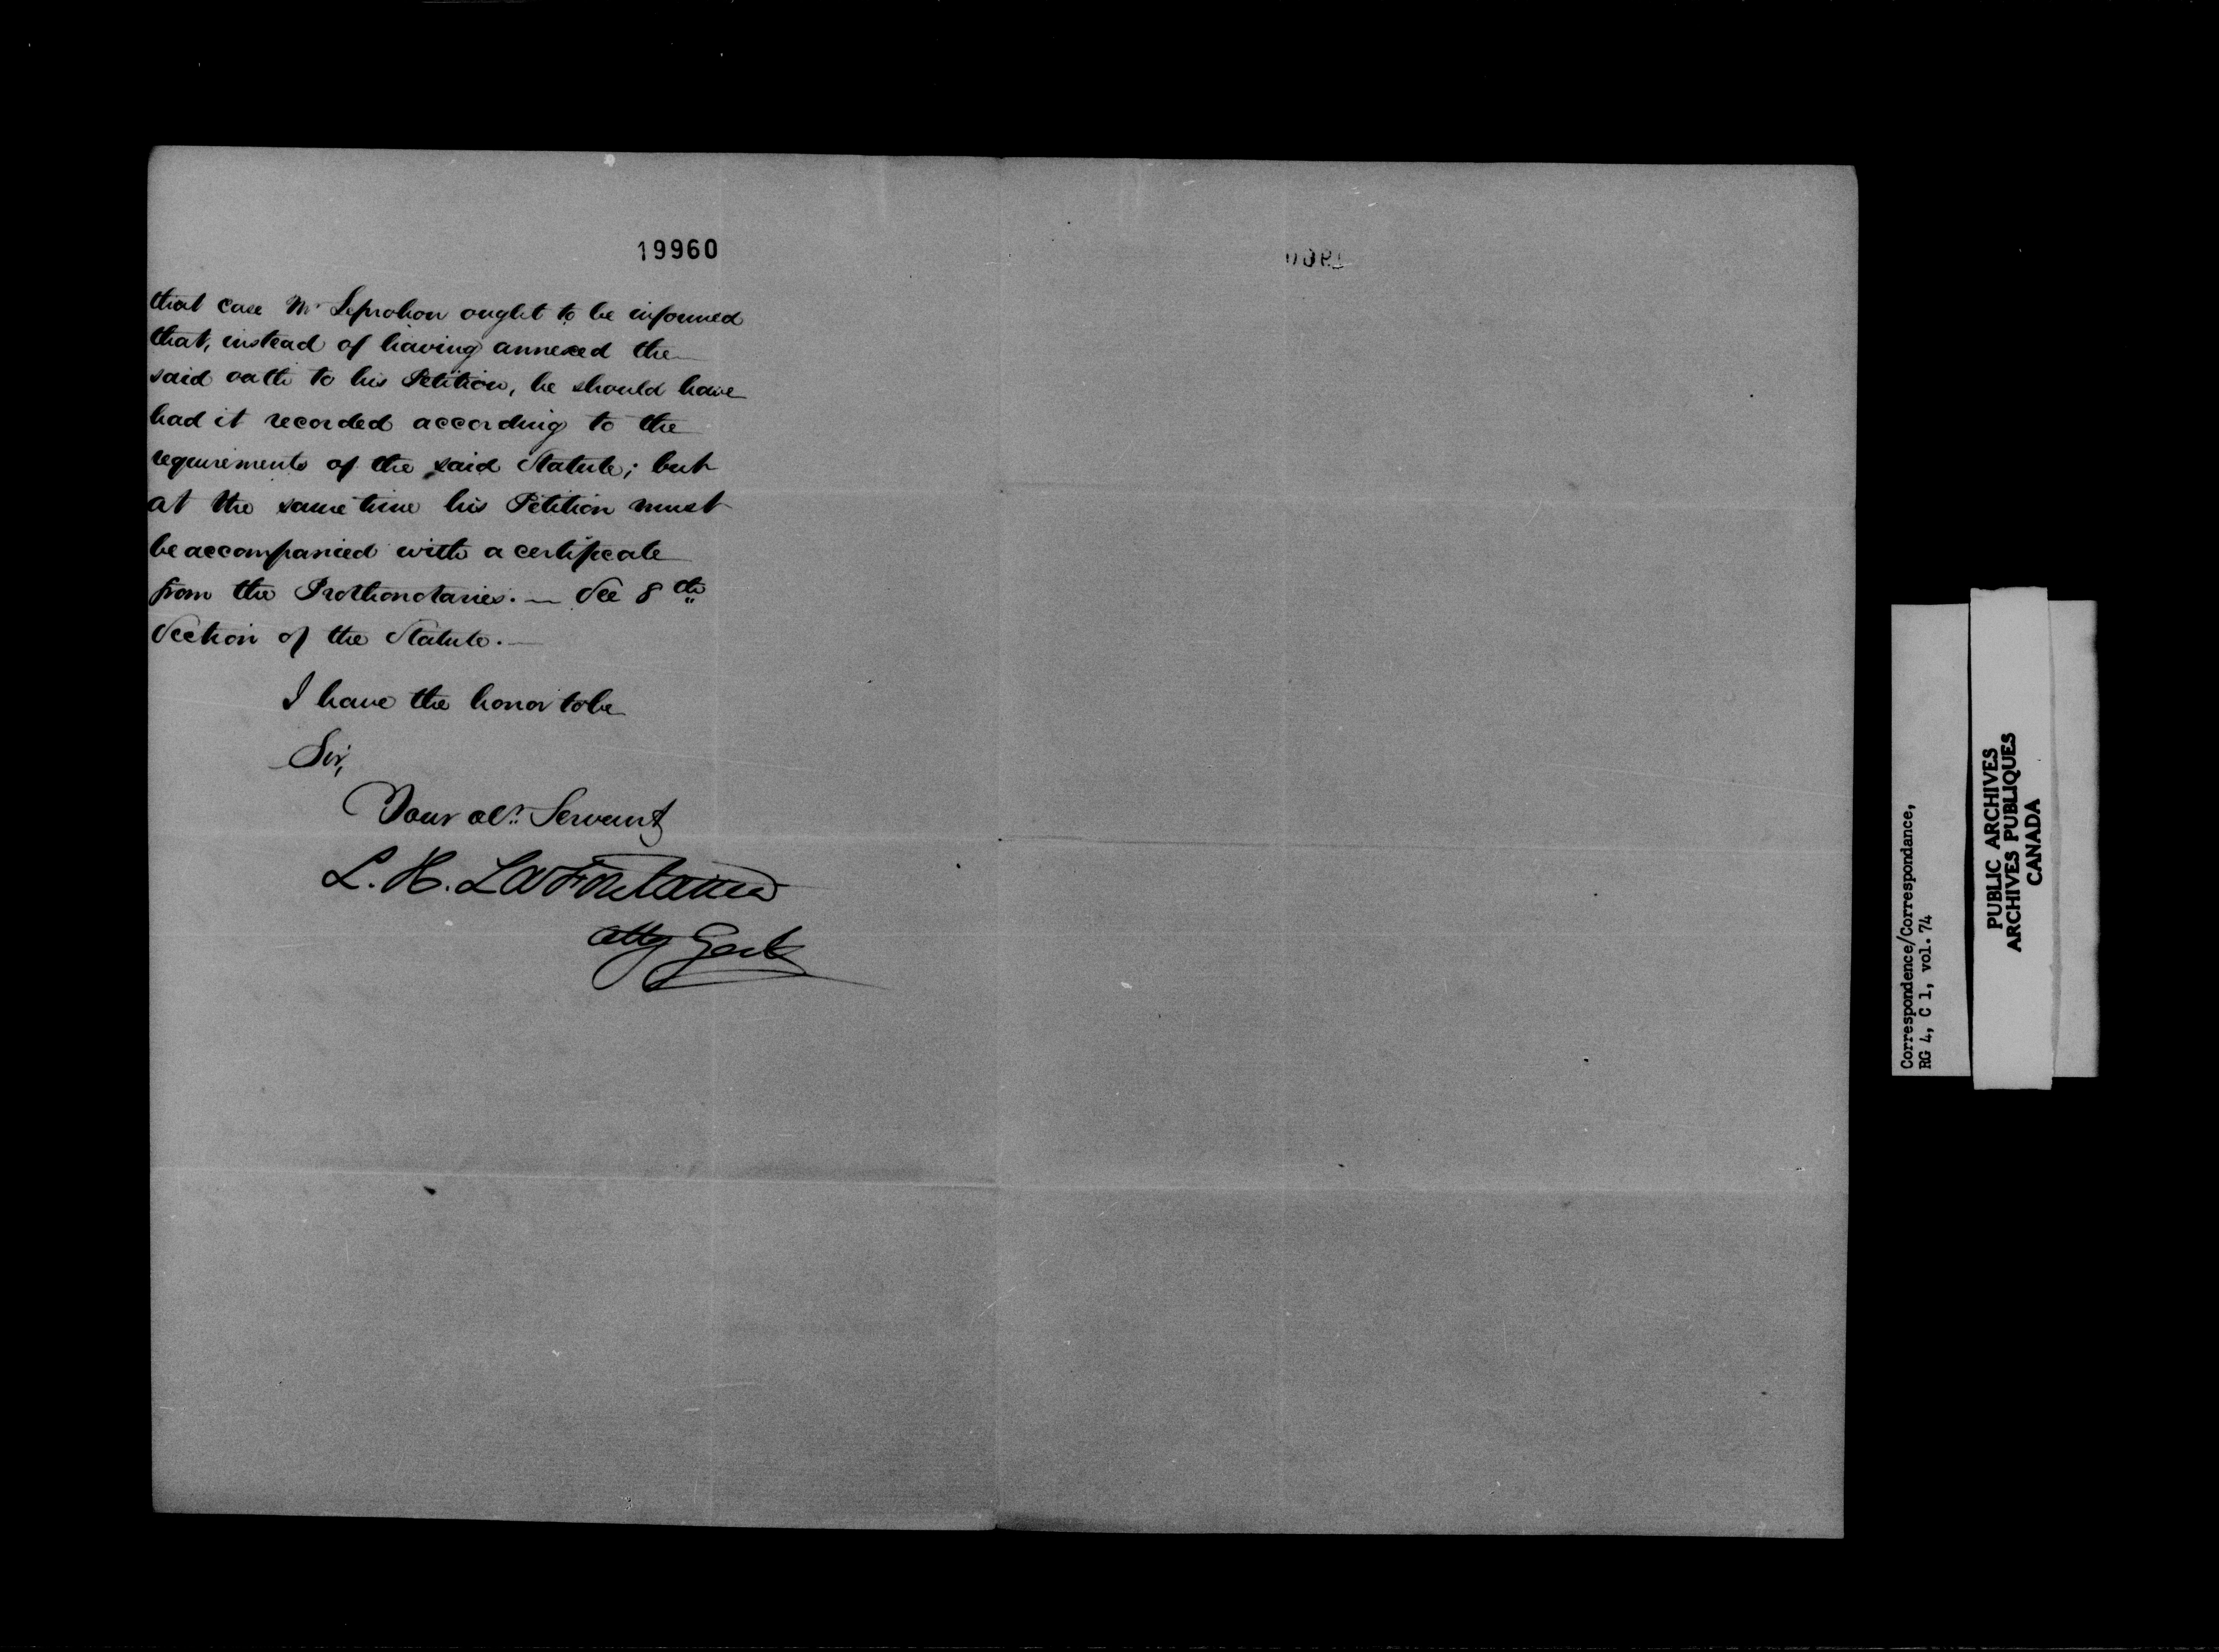 19960
that case Mr Leprohon ought to be informed
that, instead of having annexed the
said oath to his Petition, he should have
had it recorded according to the
requirements of the said Statute; but
at the same time his Petition must
be accompanied with a certificate
from the Prothonotaries. — See 8th
Section of the Statute. —
I have the honor to be
Sir,
Your obt. Servant
L. H. LaFontaine
Atty Genl
Correspondence/Correspondance,
RG 4, C 1, vol. 74
PUBLIC ARCHIVES
ARCHIVES PUBLIQUES
CANADA